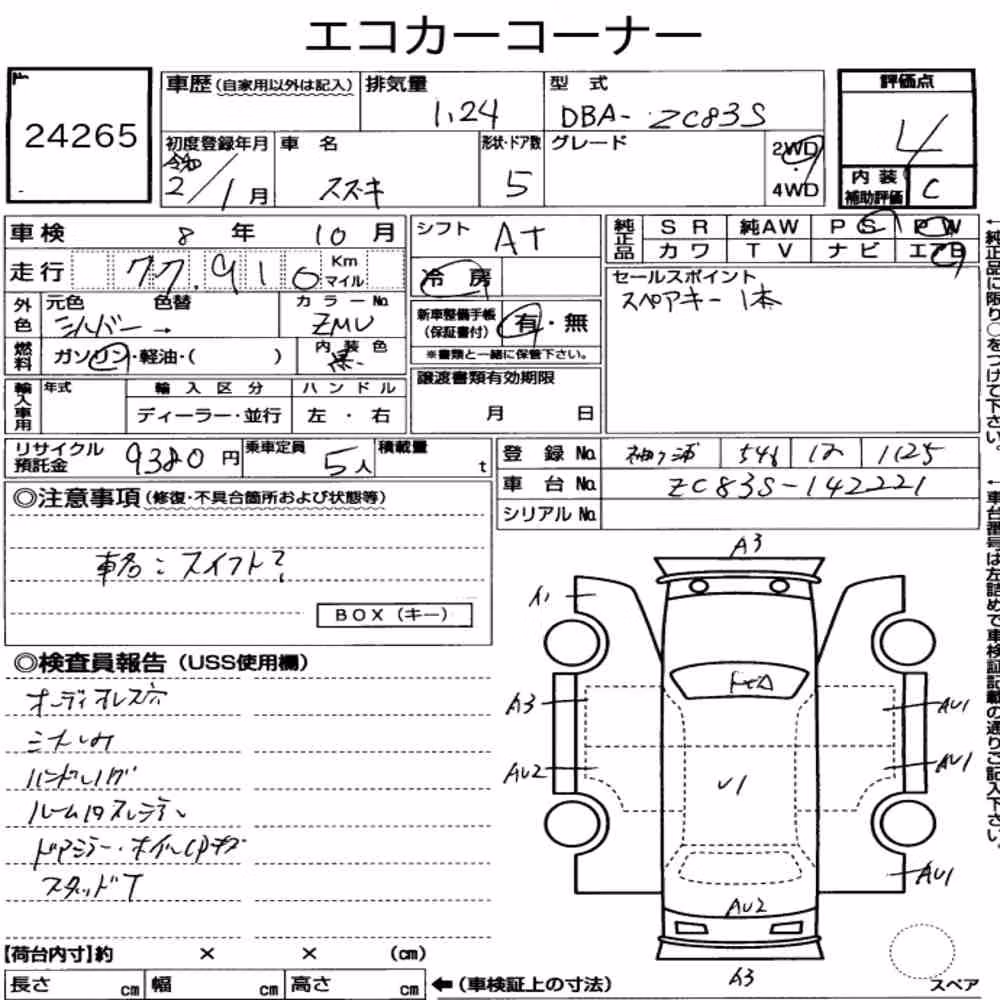 エコカーコーナー
24265
車歴(自家用以外は記入) 排気量 1.24 型 式 DBA- ZC83S 評価点 4
初度登録年月 令和 2/1月 車 名 スズキ 形状・ドア数 5 グレード 2WD・4WD
内装補助評価 C
車検 8 年 10 月 シフト AT 純正品 SR 純AW PS PW
カワ TV ナビ エアB
走行 77,910 Km マイル 冷房
セールスポイント
スペアキー 1本
外色 元色 シルバー → 色替 カラーNo ZMU
新車整備手帳(保証書付) 有・無
※書類と一緒に保管下さい。
燃料 ガソリン・軽油・( ) 内装色 黒
輸入車用 年式 輸入区分 ハンドル
ディーラー・並行 左・右
譲渡書類有効期限
月 日
リサイクル預託金 9380 円 乗車定員 5人 積載量 t
登録No. 袖ヶ浦 546 1125
車台No. ZC83S-142221
シリアルNo.
◎注意事項(修復・不具合箇所および状態等)
車名:スイフト?
BOX(キー)
◎検査員報告(USS使用欄)
オーディオレス穴
ハンドル
スタッドT
A3
A1
A3
AU2
AU1
AU1
U1
AU1
AU2
A3
スペア
【荷台内寸】約 × × (cm)
長さ cm 幅 cm 高さ cm ←(車検証上の寸法)
←純正品に限り○をつけて下さい。
←車台番号は左詰めで車検証記載の通りご記入下さい。